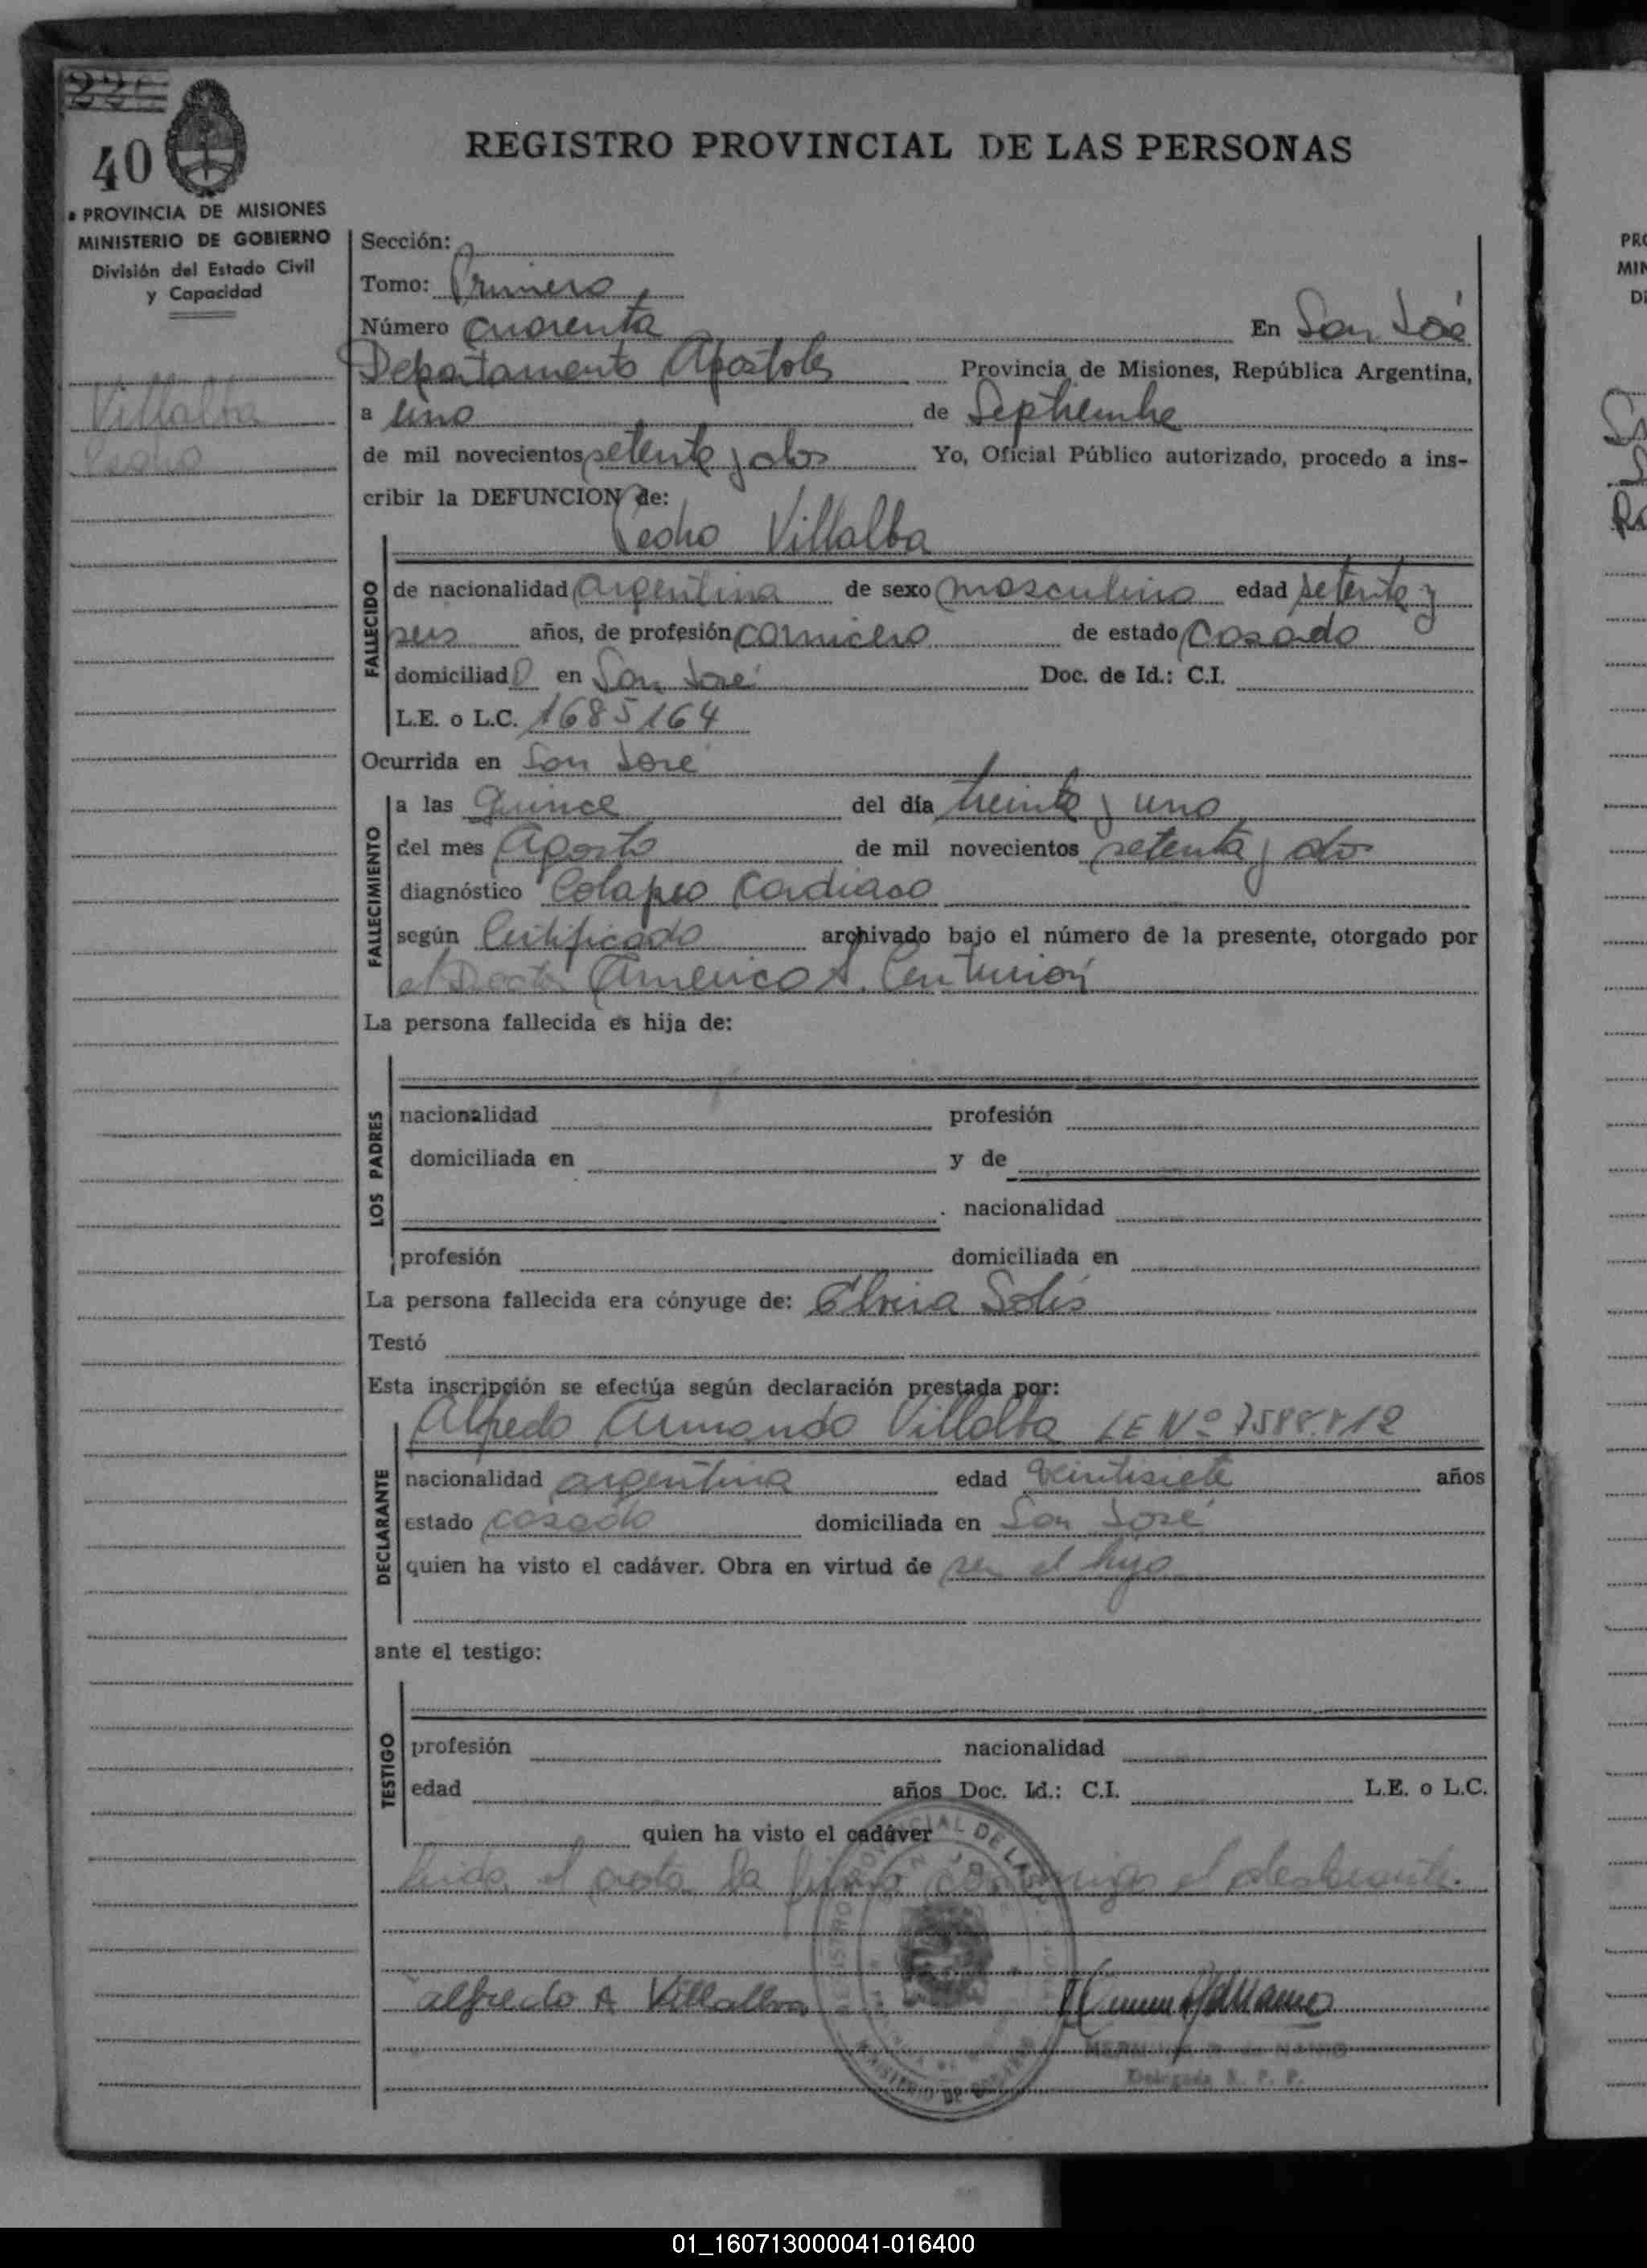 226
40
REGISTRO PROVINCIAL DE LAS PERSONAS
PROVINCIA DE MISIONES
MINISTERIO DE GOBIERNO
División del Estado Civil
y Capacidad
Villalba
Pedro
Sección:
Tomo: Primero
Número cuarenta En San José
Departamento Apóstoles Provincia de Misiones, República Argentina,
a uno de Septiembre
de mil novecientos setenta y dos Yo, Oficial Público autorizado, procedo a ins-
cribir la DEFUNCION de:
Pedro Villalba
FALLECIDO
de nacionalidad argentina de sexo masculino edad setenta y
seis años, de profesión carnicero de estado casado
domiciliado en San José Doc. de Id.: C.I.
L.E. o L.C. 1685164
Ocurrida en San José
FALLECIMIENTO
a las quince del día treinta y uno
del mes Agosto de mil novecientos setenta y dos
diagnóstico Colapso Cardiaco
según Certificado archivado bajo el número de la presente, otorgado por
el Doctor Americo A. Centurión
La persona fallecida es hija de:
LOS PADRES
nacionalidad profesión
domiciliada en y de
nacionalidad
profesión domiciliada en
La persona fallecida era cónyuge de: Elvira Solis
Testó
Esta inscripción se efectúa según declaración prestada por:
DECLARANTE
Alfredo Armando Villalba LE Nº
nacionalidad argentina edad veintisiete años
estado casado domiciliada en San José
quien ha visto el cadáver. Obra en virtud de ser el hijo
ante el testigo:
TESTIGO
profesión nacionalidad
edad años Doc. Id.: C.I. L.E. o L.C.
quien ha visto el cadáver
leida el acta la firma conmigo el declarante.
alfredo A Villalba
Delegada R. P. P.
MINISTERIO DE GOBIERNO
01_160713000041-016400
PRO
MIN